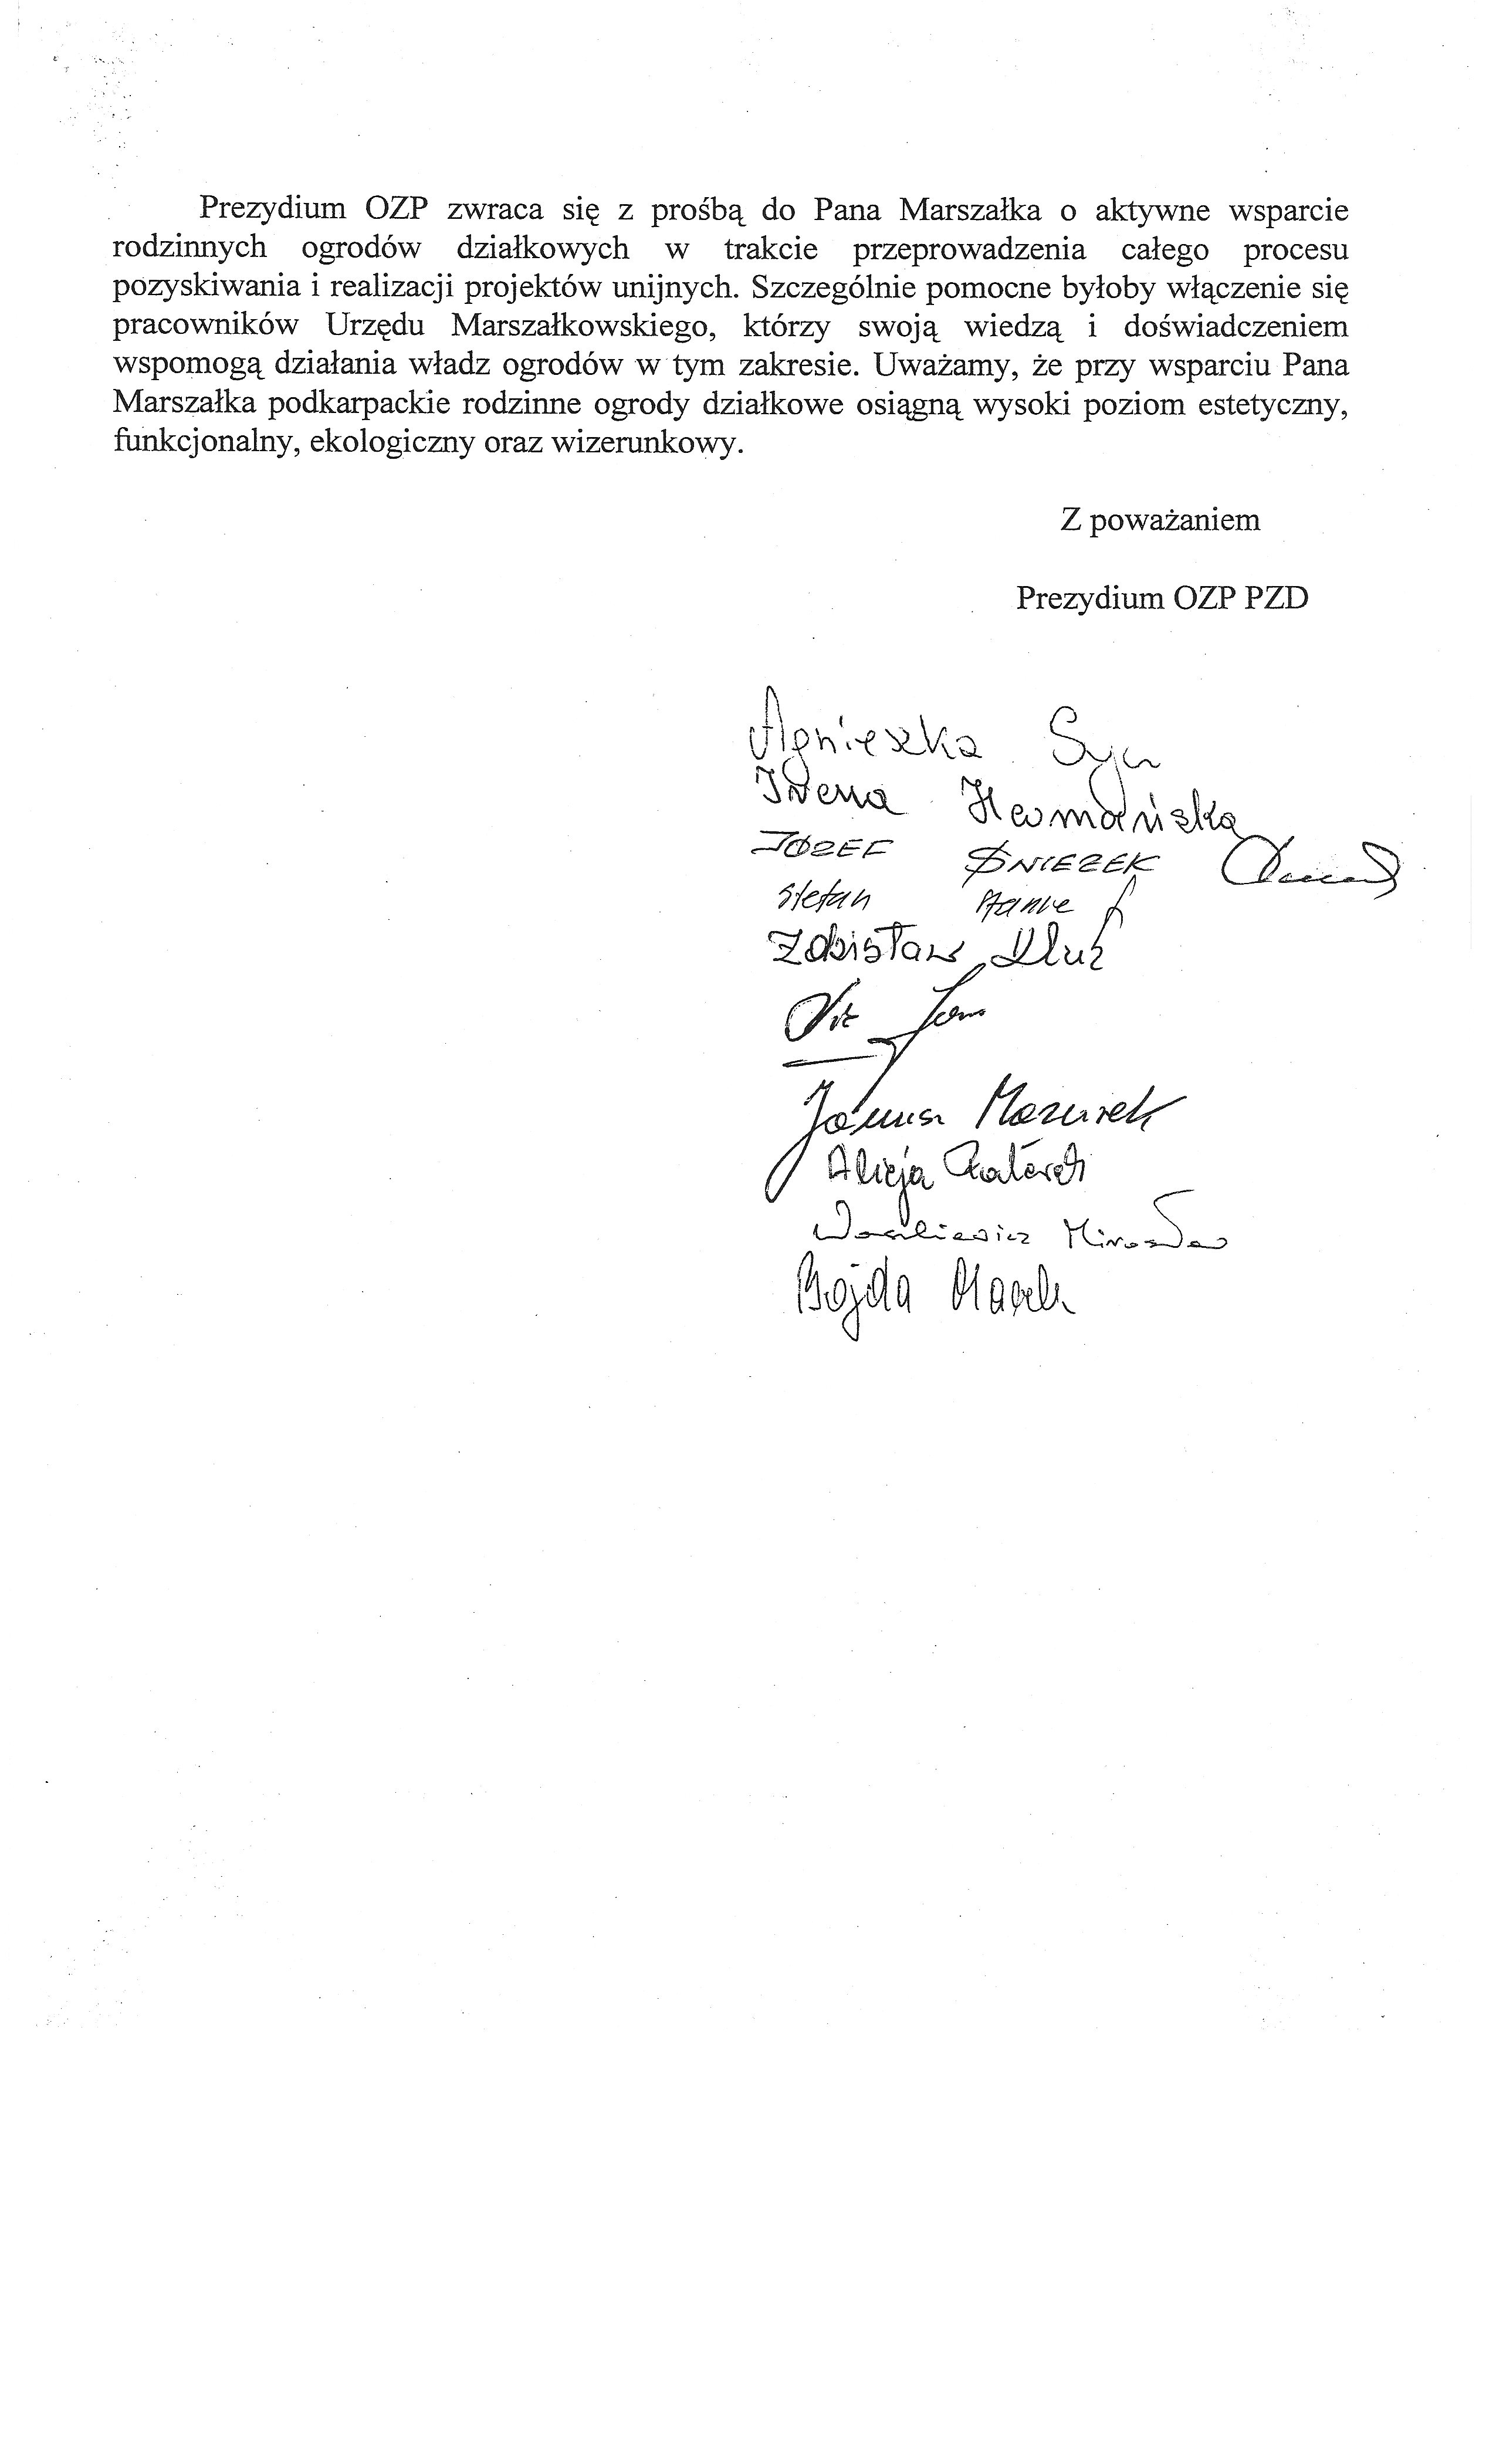 Prezydium OZP zwraca się z prośbą do Pana Marszałka o aktywne wsparcie
rodzinnych ogrodów działkowych w trakcie przeprowadzenia całego procesu
pozyskiwania i realizacji projektów unijnych. Szczególnie pomocne byłoby włączenie się
pracowników Urzędu Marszałkowskiego, którzy swoją wiedzą i doświadczeniem
wspomogą działania władz ogrodów w tym zakresie. Uważamy, że przy wsparciu Pana
Marszałka podkarpackie rodzinne ogrody działkowe osiągną wysoki poziom estetyczny,
funkcjonalny, ekologiczny oraz wizerunkowy.
Z poważaniem
Prezydium OZP PZD
Agnieszka
JÓZEF
Stefan
Zdzisław Kluz
Jan
Janusz Mazurek
Alicja
Mirosław
Bojda Marek